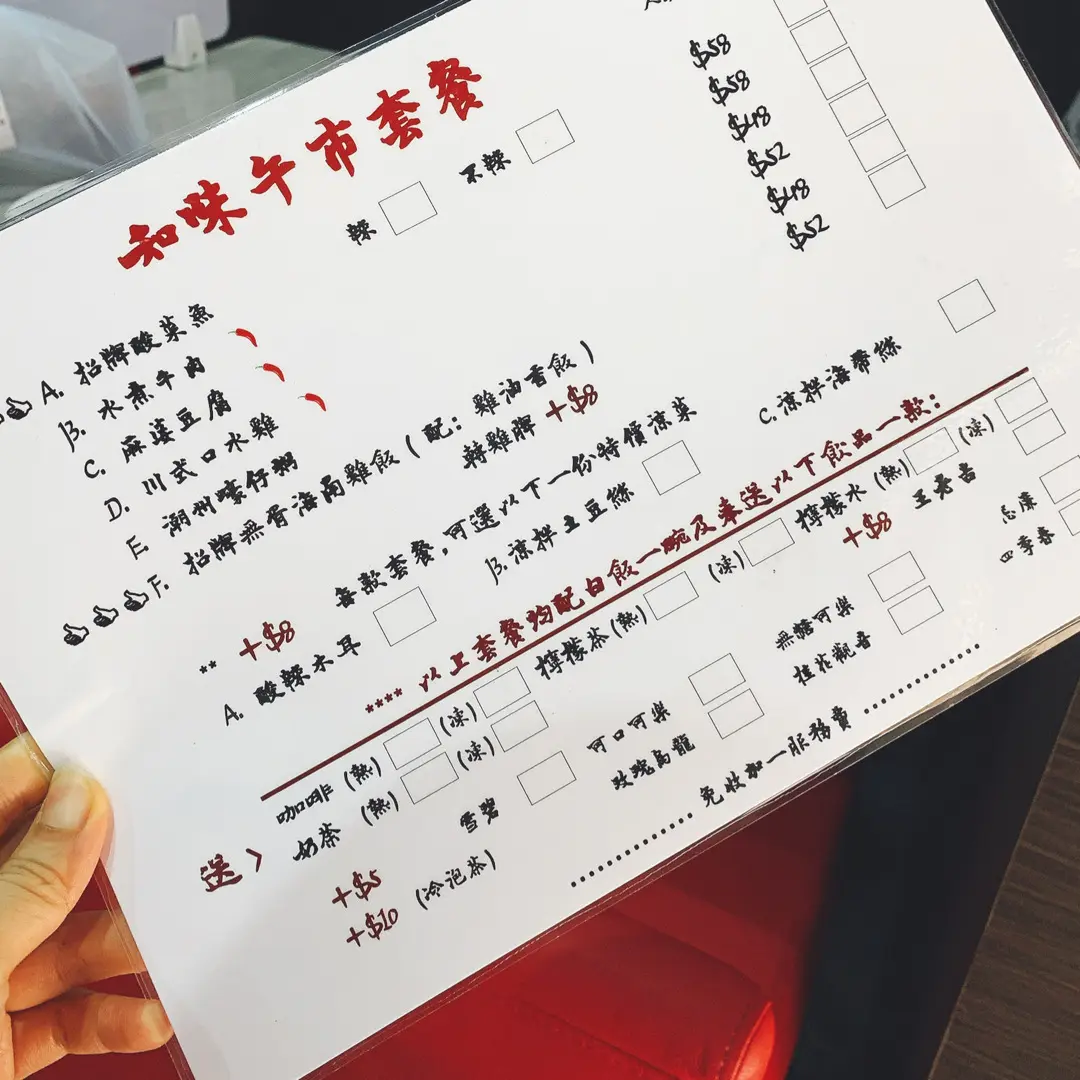 和味午市套餐
辣 不辣
A. 招牌酸菜魚 $58
B. 水煮牛肉 $58
C. 麻婆豆腐 $48
D. 川式口水雞 $52
E. 潮州蠔仔粥 $48
F. 招牌無骨海南雞飯 (配: 雞油香飯) $52
轉雞髀 +$8
** +$8 每款套餐,可選以下一份特價涼菜
A. 酸辣木耳 B. 涼拌土豆絲 C. 涼拌海帶絲
**** 以上套餐均配白飯一碗及奉送以下飲品一款:
送> 咖啡 (熱) (凍) 檸檬茶 (熱) (凍) 檸檬水 (熱) (凍)
奶茶 (熱) (凍)
+$5 雪碧 可口可樂 無糖可樂 +$8 王老吉
+$10 (冷泡茶) 玫瑰烏龍 桂花觀音 四季春
免收加一服務費